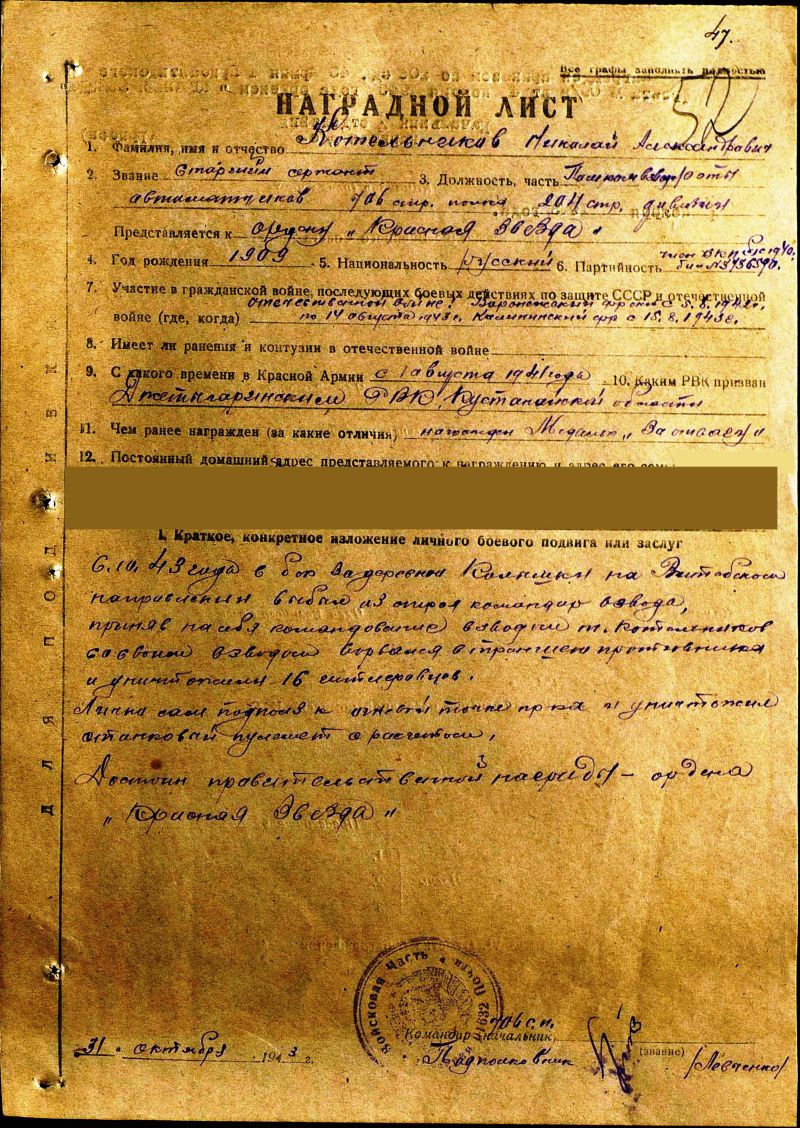 47.
Все графы заполнять полностью
52
НАГРАДНОЙ ЛИСТ
1. Фамилия, имя и отчество Котельников Николай Александрович
2. Звание Старший сержант 3. Должность, часть Помкомвзвод роты
автоматчиков 706 стр. полка 204 стр. дивизии
Представляется к ордену „Красная Звезда"
4. Год рождения 1909 5. Национальность русский 6. Партийность член ВКП(б) с 1940.
бил №3756590.
7. Участие в гражданской войне, последующих боевых действиях по защите СССР и отечественной
войне (где, когда) Отечественной войне, Воронежский фронт с 5.8.1942г.
по 14 августа 1943г. Калининский фр с 15.8.1943г.
8. Имеет ли ранения и контузии в отечественной войне
9. С какого времени в Красной Армии с 1 августа 1941 года 10. Каким РВК призван
Джетыгаринским РВК, Кустанайской области
11. Чем ранее награжден (за какие отличия) награжден Медалью „За отвагу"
12. Постоянный домашний адрес представляемого к награждению и адрес его семьи
I. Краткое, конкретное изложение личного боевого подвига или заслуг
6.10.43 года в бою за деревню Колышки на Витебском
направлении выбыл из строя командир взвода,
приняв на себя командование взводом т. Котельников
со своим взводом ворвался в траншею противника
и уничтожили 16 гитлеровцев.
Лично сам подполз к огневой точке пр-ка и уничтожил
станковый пулемет с расчетом.
Достоин правительственной награды – ордена
„Красная Звезда"
ДЛЯ ПОДШИВКИ
Войсковая часть Почта 1632
706 с.п.
Командир Начальник
Подполковник (звание) /Левченко/
31 октября 1943 г.